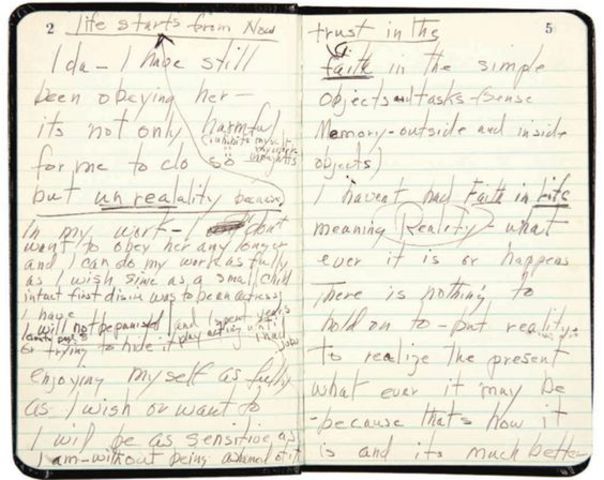 2
life starts from Now
Ida - I have still
been obeying her -
its not only harmful
for me to do so
but unreality because
In my work - I dont
want to obey her any longer
and I can do my work as fully
as I wish since as a small child
intact first desire was to be an actress
I have
I will not be punished and I spent years
play acting until I had jobs
or trying to hide it
enjoying myself as fully
as I wish or want to
I will be as sensitive as
I am - without being ashamed of it
5
trust in the
faith in the simple
objects and tasks - (sense
Memory - outside and inside
objects)
I havent had Faith in Life
meaning Reality - what
ever it is or happens
There is nothing to
hold on to - but reality
to realize the present
what ever it may be
- because thats how it
is and its much better